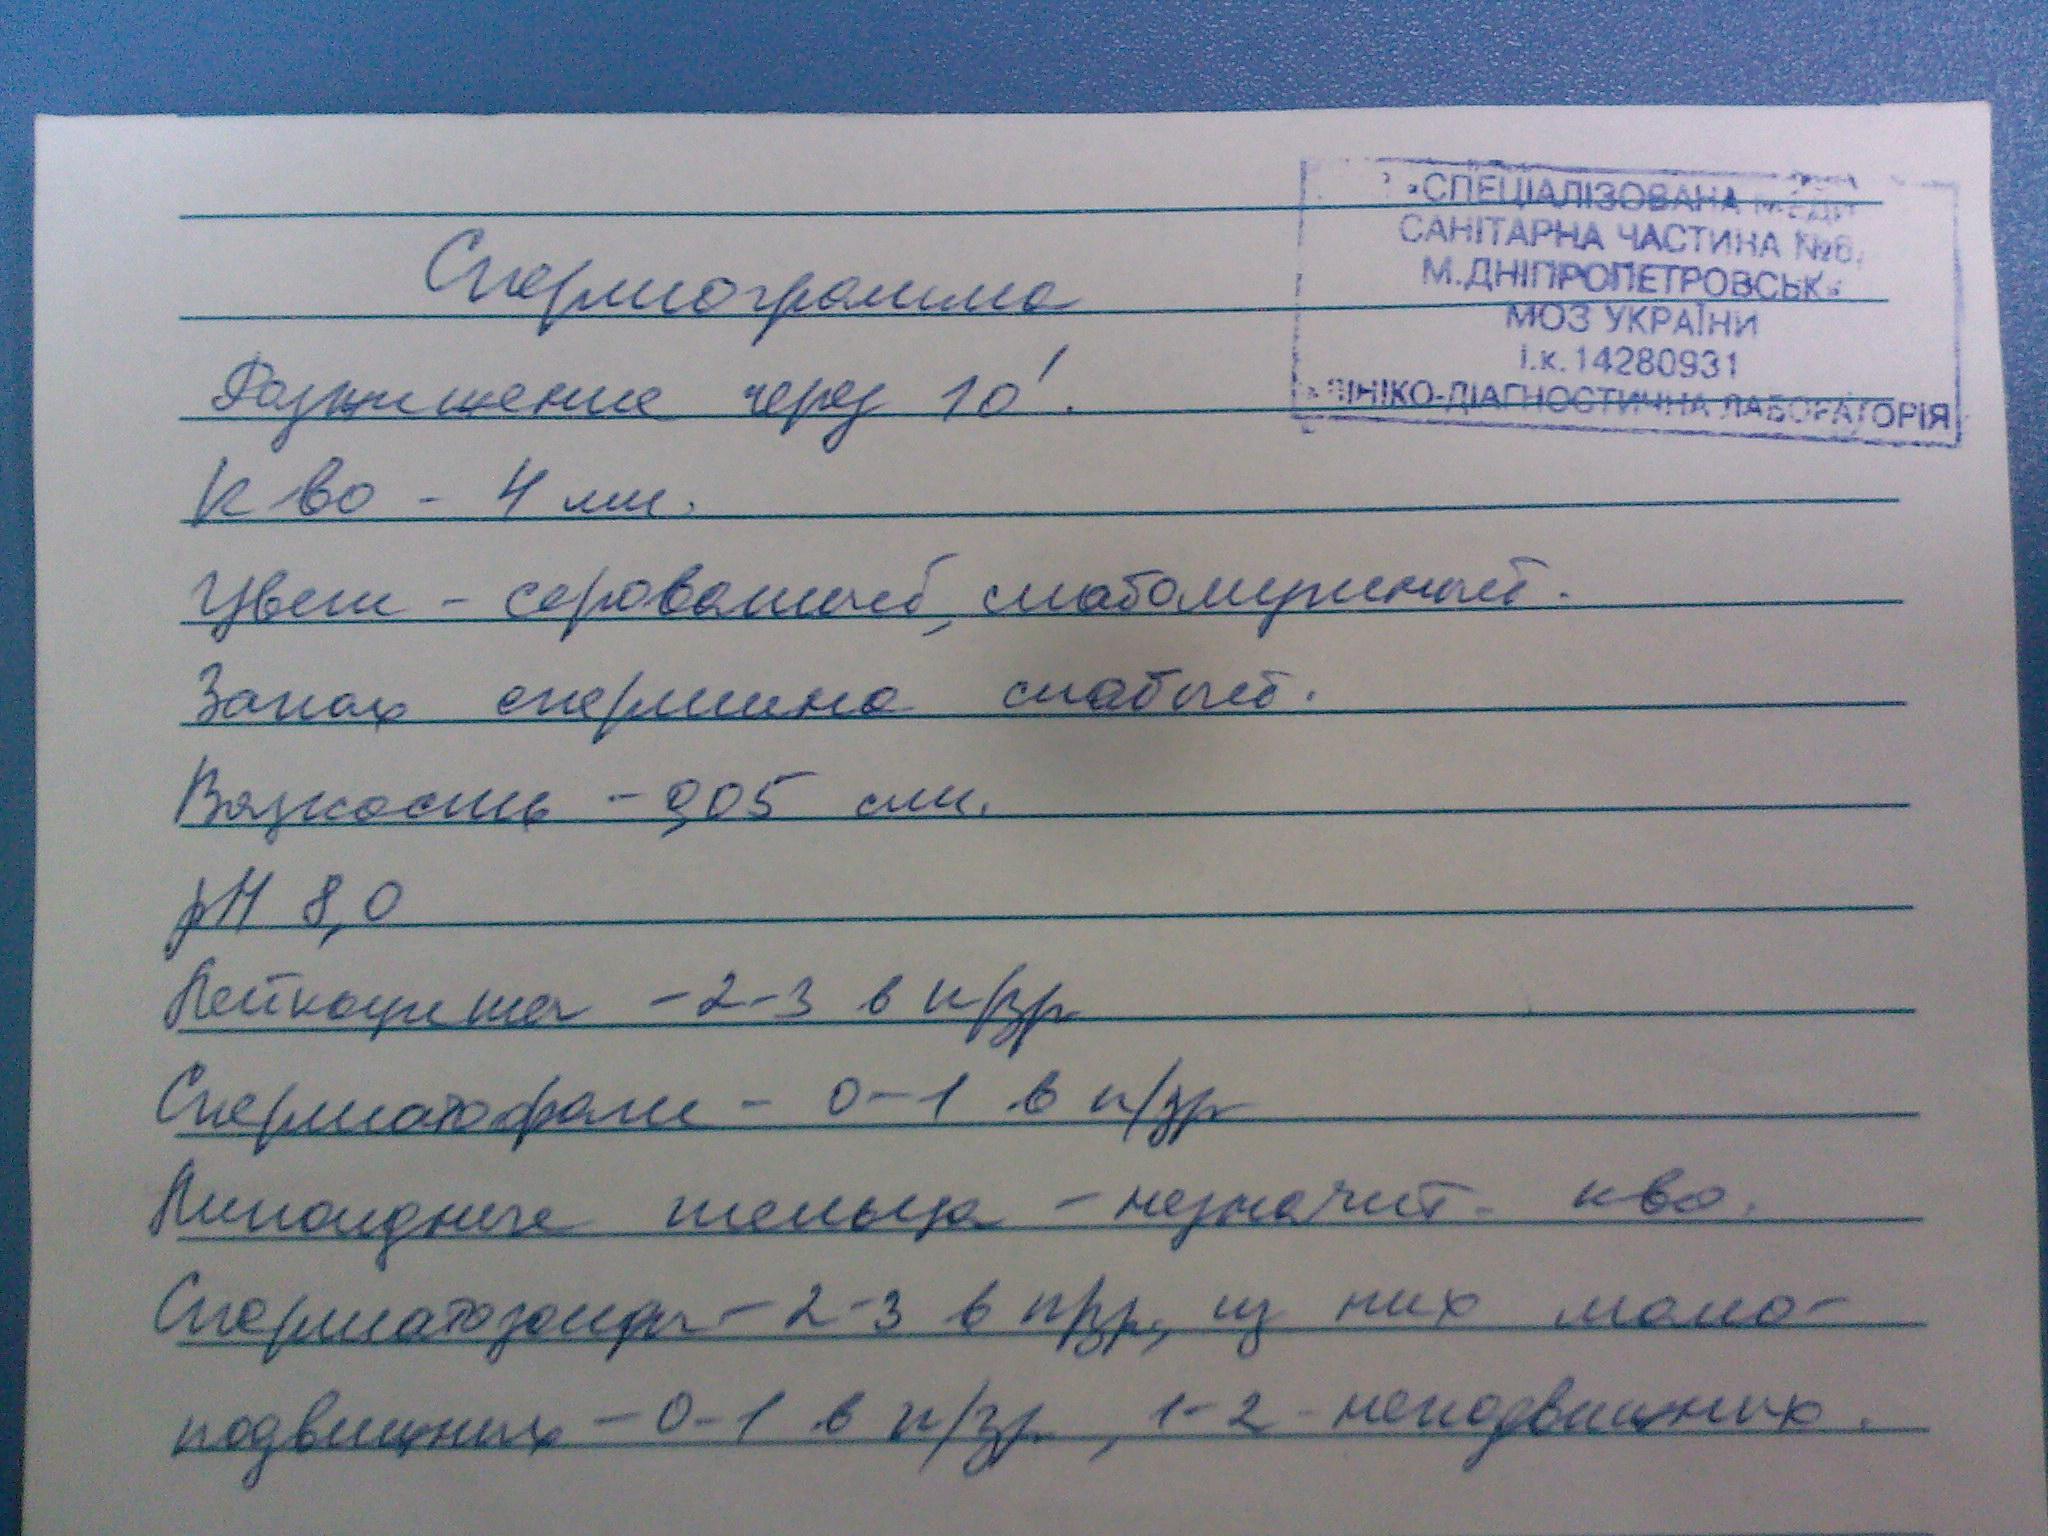 СПЕЦІАЛІЗОВАНА
САНІТАРНА ЧАСТИНА №6
М.ДНІПРОПЕТРОВСЬК
МОЗ УКРАЇНИ
і.к. 14280931
ЛІНІКО-ДІАГНОСТИЧНА ЛАБОРАТОРІЯ
Спермограмма
Разжижение через 10'.
К-во - 4 мл.
Цвет - сероватый, слабомутный.
Запах спермина слабый.
Вязкость - 0,05 см.
pH 8,0
Лейкоциты - 2-3 в п/зр
Сперматофаги - 0-1 в п/зр
Липоидные тельца - незначит. к-во.
Сперматозоиды - 2-3 в п/зр, из них мало-
подвижных - 0-1 в п/зр, 1-2 - неподвижных.